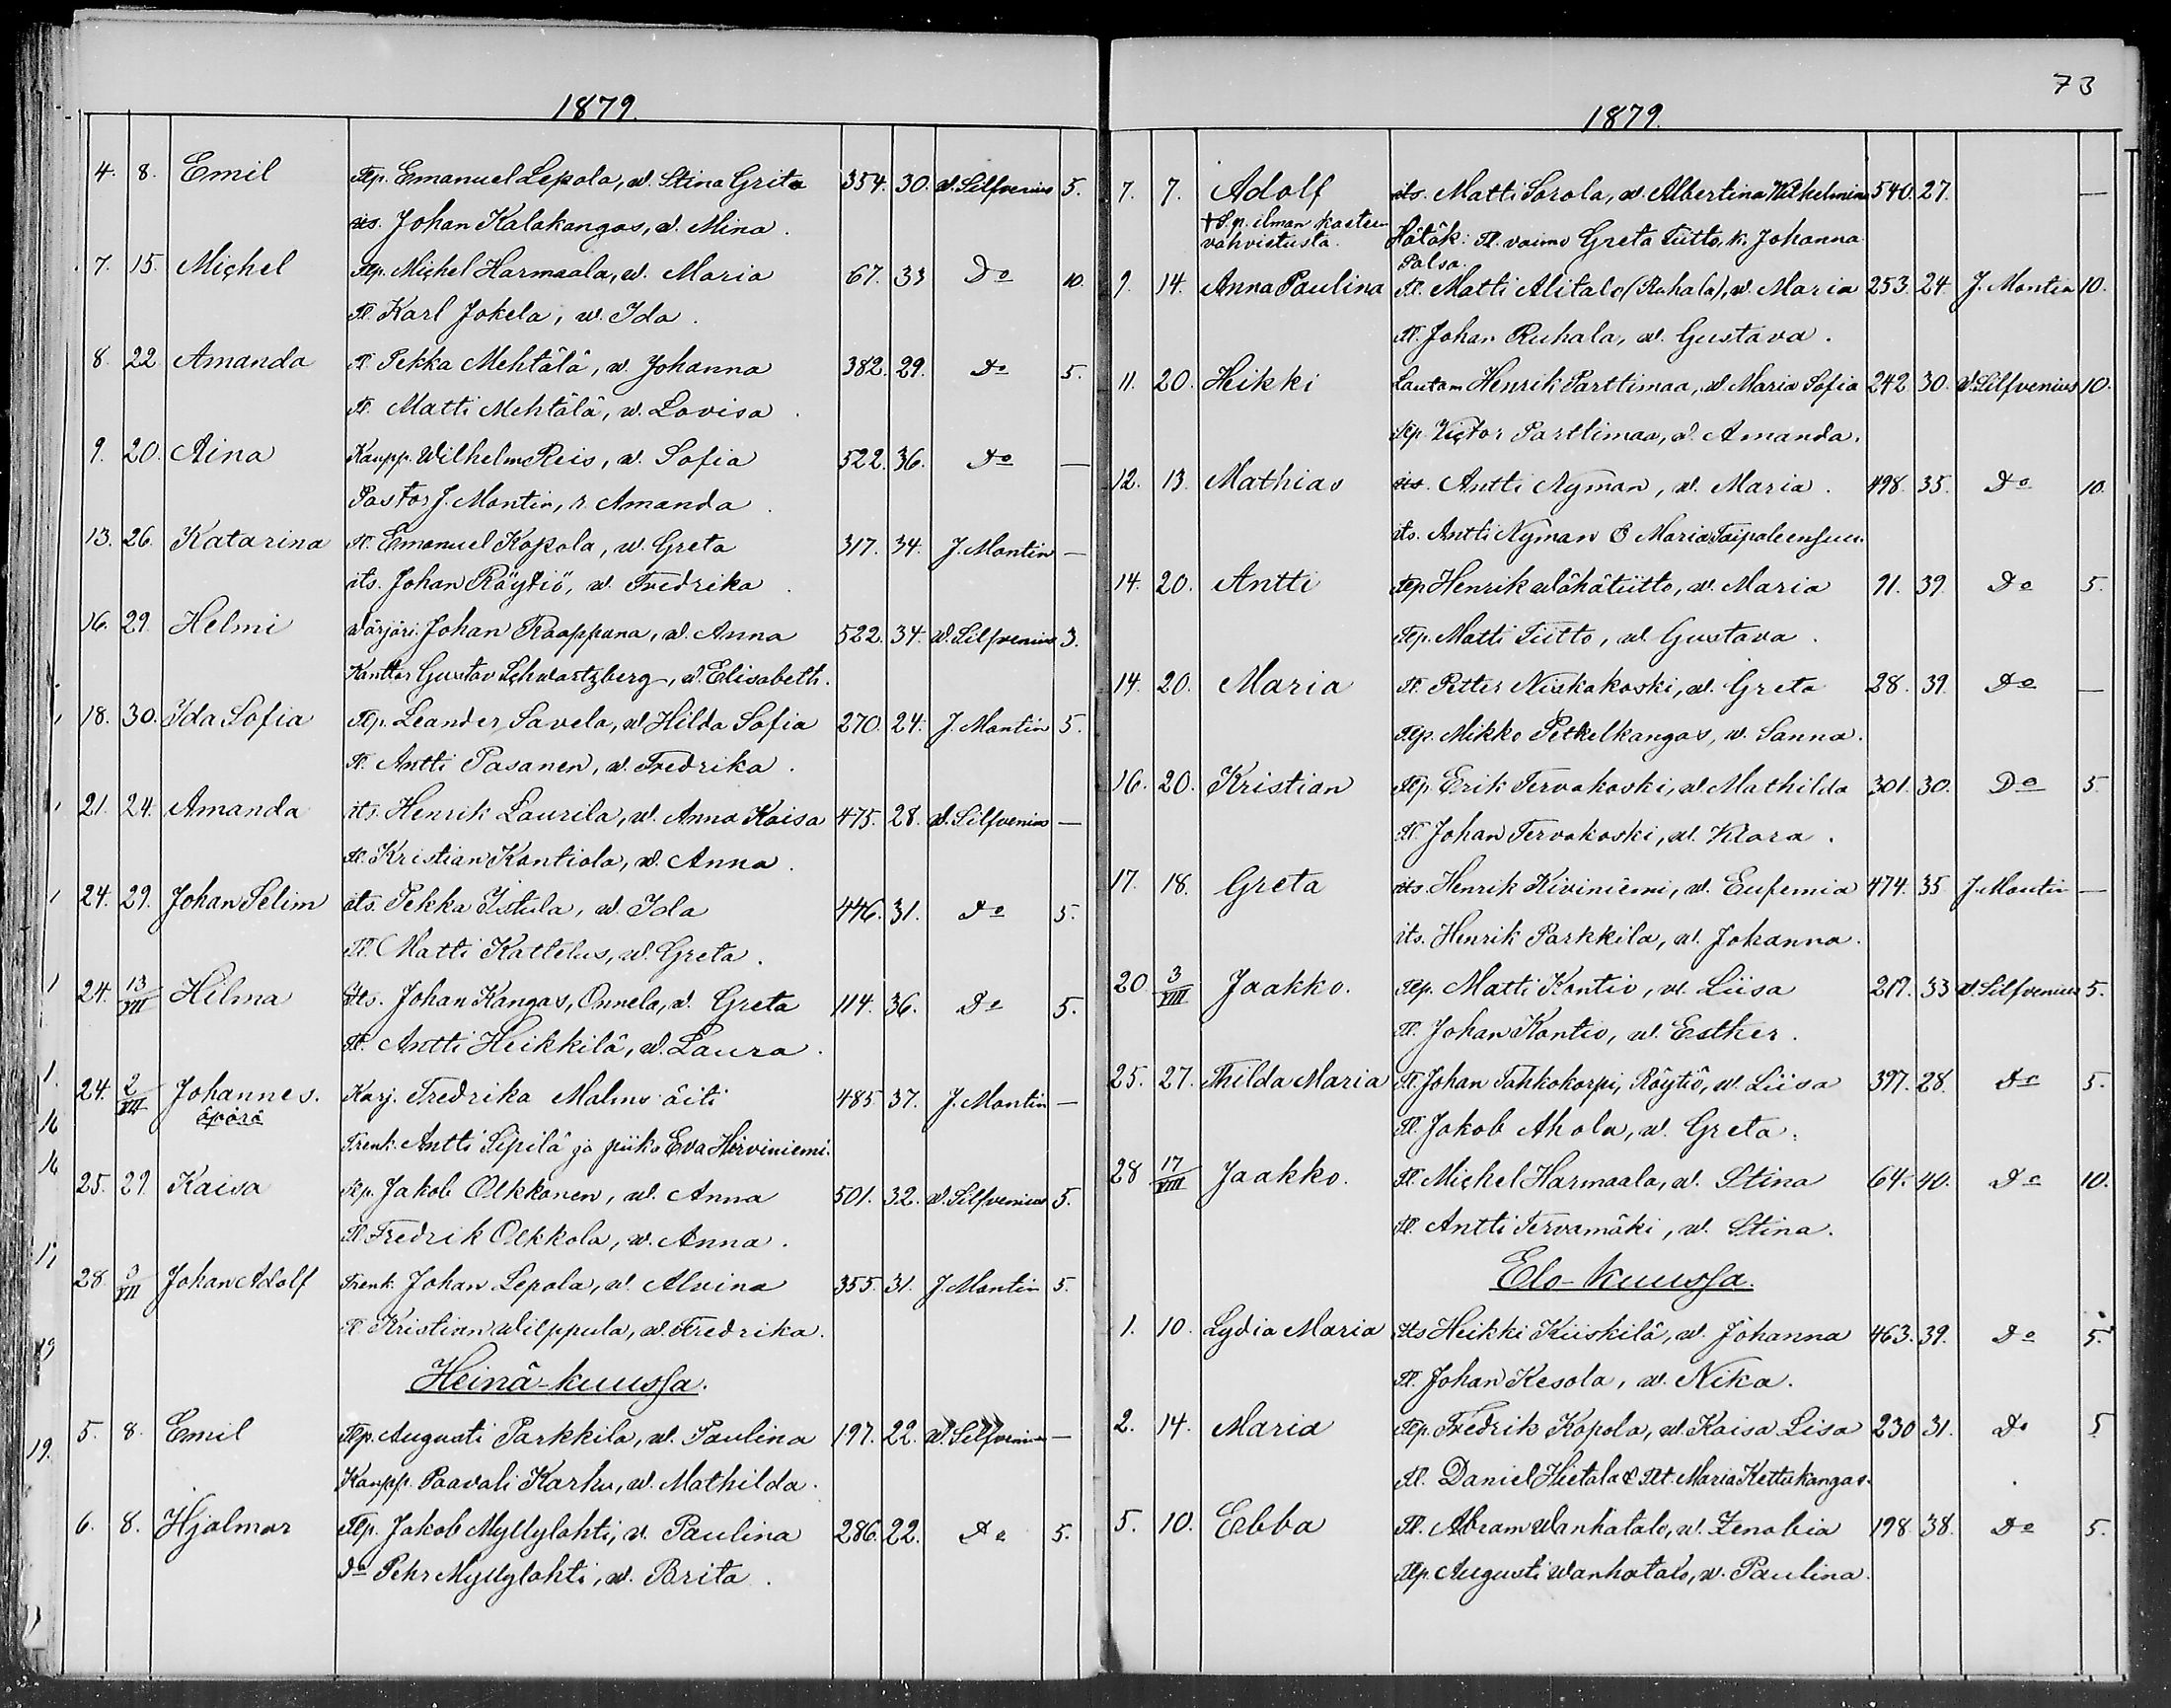 1879.
4. 8. Emil Tlp. Emanuel Lepola, v. Stina Greta 354. 30. W. Silfvenius 5.
its. Johan Kalakangas, v. Mina.
7. 15. Michel Tlp. Michel Harmaala, v. Maria 67. 33 Do 10.
Tl. Karl Jokela, v. Ida.
8. 22 Amanda Tl. Pekka Mehtälä, v. Johanna 382. 29. Do 5.
Tl. Matti Mehtälä, v. Lovisa.
9. 20. Aina Kaupp. Wilhelm Reis, v. Sofia 522. 36. Do —
Pastor J. Montin, r. Amanda.
13. 26. Katarina Tl. Emanuel Kopola, v. Greta 317. 34. J. Montin —
its. Johan Röytiö, v. Fredrika.
16. 29. Helmi Wärjäri Johan Raappana, v. Anna 522. 34. W. Silfvenius 3.
Kanttor Gustav Schwartzberg, v. Elisabeth.
18. 30. Ida Sofia Tlp. Leander Savela, v. Hilda Sofia 270. 24. J. Montin 5.
Tl. Antti Pasanen, v. Fredrika.
21. 24. Amanda its. Henrik Laurila, v. Anna Kaisa 475. 28. W. Silfvenius —
Tl. Kristian Kantiola, v. Anna.
24. 29. Johan Selim its. Pekka Istula, v. Ida 446. 31. Do 5.
Tl. Matti Kattelus, v. Greta.
24. 13/VII Hilma Its. Johan Kangas, Onnela, v. Greta 114. 36. Do 5.
Tl. Antti Heikkilä, v. Laura.
24. 2/VII Johannes. Karj. Fredrika Malms äiti 485. 37. J. Montin —
äpärä
Trenk. Antti Sipilä ja piika Eva Hirviniemi.
25. 29. Kaisa Tlp. Jakob Olkkonen, v. Anna 501. 32. W. Silfvenius 5.
Tl. Fredrik Olkkola, v. Anna.
28. /VII Johan Adolf Trenk. Johan Lepola, v. Alvina 355. 31. J. Montin 5.
Tl. Kristian Wilppula, v. Fredrika.
Heinä-kuussa.
5. 8. Emil Tlp. Augusti Parkkila, v. Paulina 197. 22. W. Silfvenius —
Kaupp. Paavali Karhu, v. Mathilda.
6. 8. Hjalmar Tlp. Jakob Myllylahti, v. Paulina 286. 22. Do 5.
Do Pehr Myllylahti, v. Brita.
73
1879.
7. 7. Adolf its. Matti Sorola, v. Albertina Wilhelmina 540. 27. —
† S. p. ilman kasteen
vahvistusta. Hätäk: Tl. vaimo Greta Tiitto, k. Johanna
Palsa.
9. 14. Anna Paulina Tl. Matti Alitalo (Ruhala), v. Maria 253. 24 J. Montin 10.
Tl. Johan Ruhala, v. Gustava.
11. 20. Heikki Lautam Henrik Parttimaa, v. Maria Sofia 242 30. W. Silfvenius 10.
Tlp. Victor Parttimaa, v. Amanda.
12. 13. Mathias its. Antti Nyman, v. Maria. 498. 35. Do 10.
its. Antti Nyman & Maria Taipaleensuu.
14. 20. Antti Tlp. Henrik Wähätiitto, v. Maria 91. 39. Do 5.
Tlp. Matti Tiitto, v. Gustava.
14. 20. Maria Tl. Petter Niskakoski, v. Greta 28. 39. Do —
Tlp. Mikko Petkelkangas, v. Sanna.
16. 20. Kristian Tlp. Erik Tervakoski, v. Mathilda 301. 30. Do 5.
Tl. Johan Tervakoski, v. Klara.
17. 18. Greta its. Henrik Kiviniemi, v. Eufemia 474. 35 J. Montin —
its. Henrik Parkkila, v. Johanna.
20. 3/VIII Jaakko. Tlp. Matti Kontio, v. Liisa 217. 33 W. Silfvenius 5.
Tl. Johan Kontio, v. Esther.
25. 27. Thilda Maria Tl. Johan Tahkokorpi, Röytiö, v. Liisa 397. 28. Do 5.
Tl. Jakob Ahola, v. Greta.
28 17/VIII Jaakko. Tl. Michel Harmaala, v. Stina 64. 40. Do 10.
Tl. Antti Tervamäki, v. Stina.
Elo-kuussa.
1. 10. Lydia Maria Its Heikki Kiiskilä, v. Johanna 463. 39. Do 5.
Tl. Johan Kesola, v. Nika.
2. 14. Maria Tlp. Fredrik Kopola, v. Kaisa Lisa 230 31. Do 5
Tl. Daniel Hietala & Tlt. Maria Kettukangas.
5. 10. Ebba Tl. Abram Wanhatalo, v. Zenobia 198. 38. Do 5.
Tlp. Augusti Wanhatalo, v. Paulina.